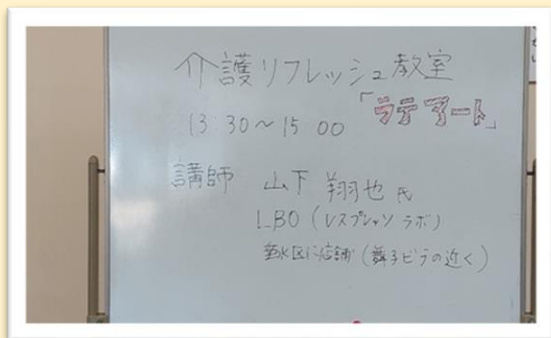 介護リフレッシュ教室
13:30～15:00 「ラテアート」
講師 山下 翔也 氏
LBO (レスプレッソ ラボ)
垂水区に店舗 (舞子ビラの近く)